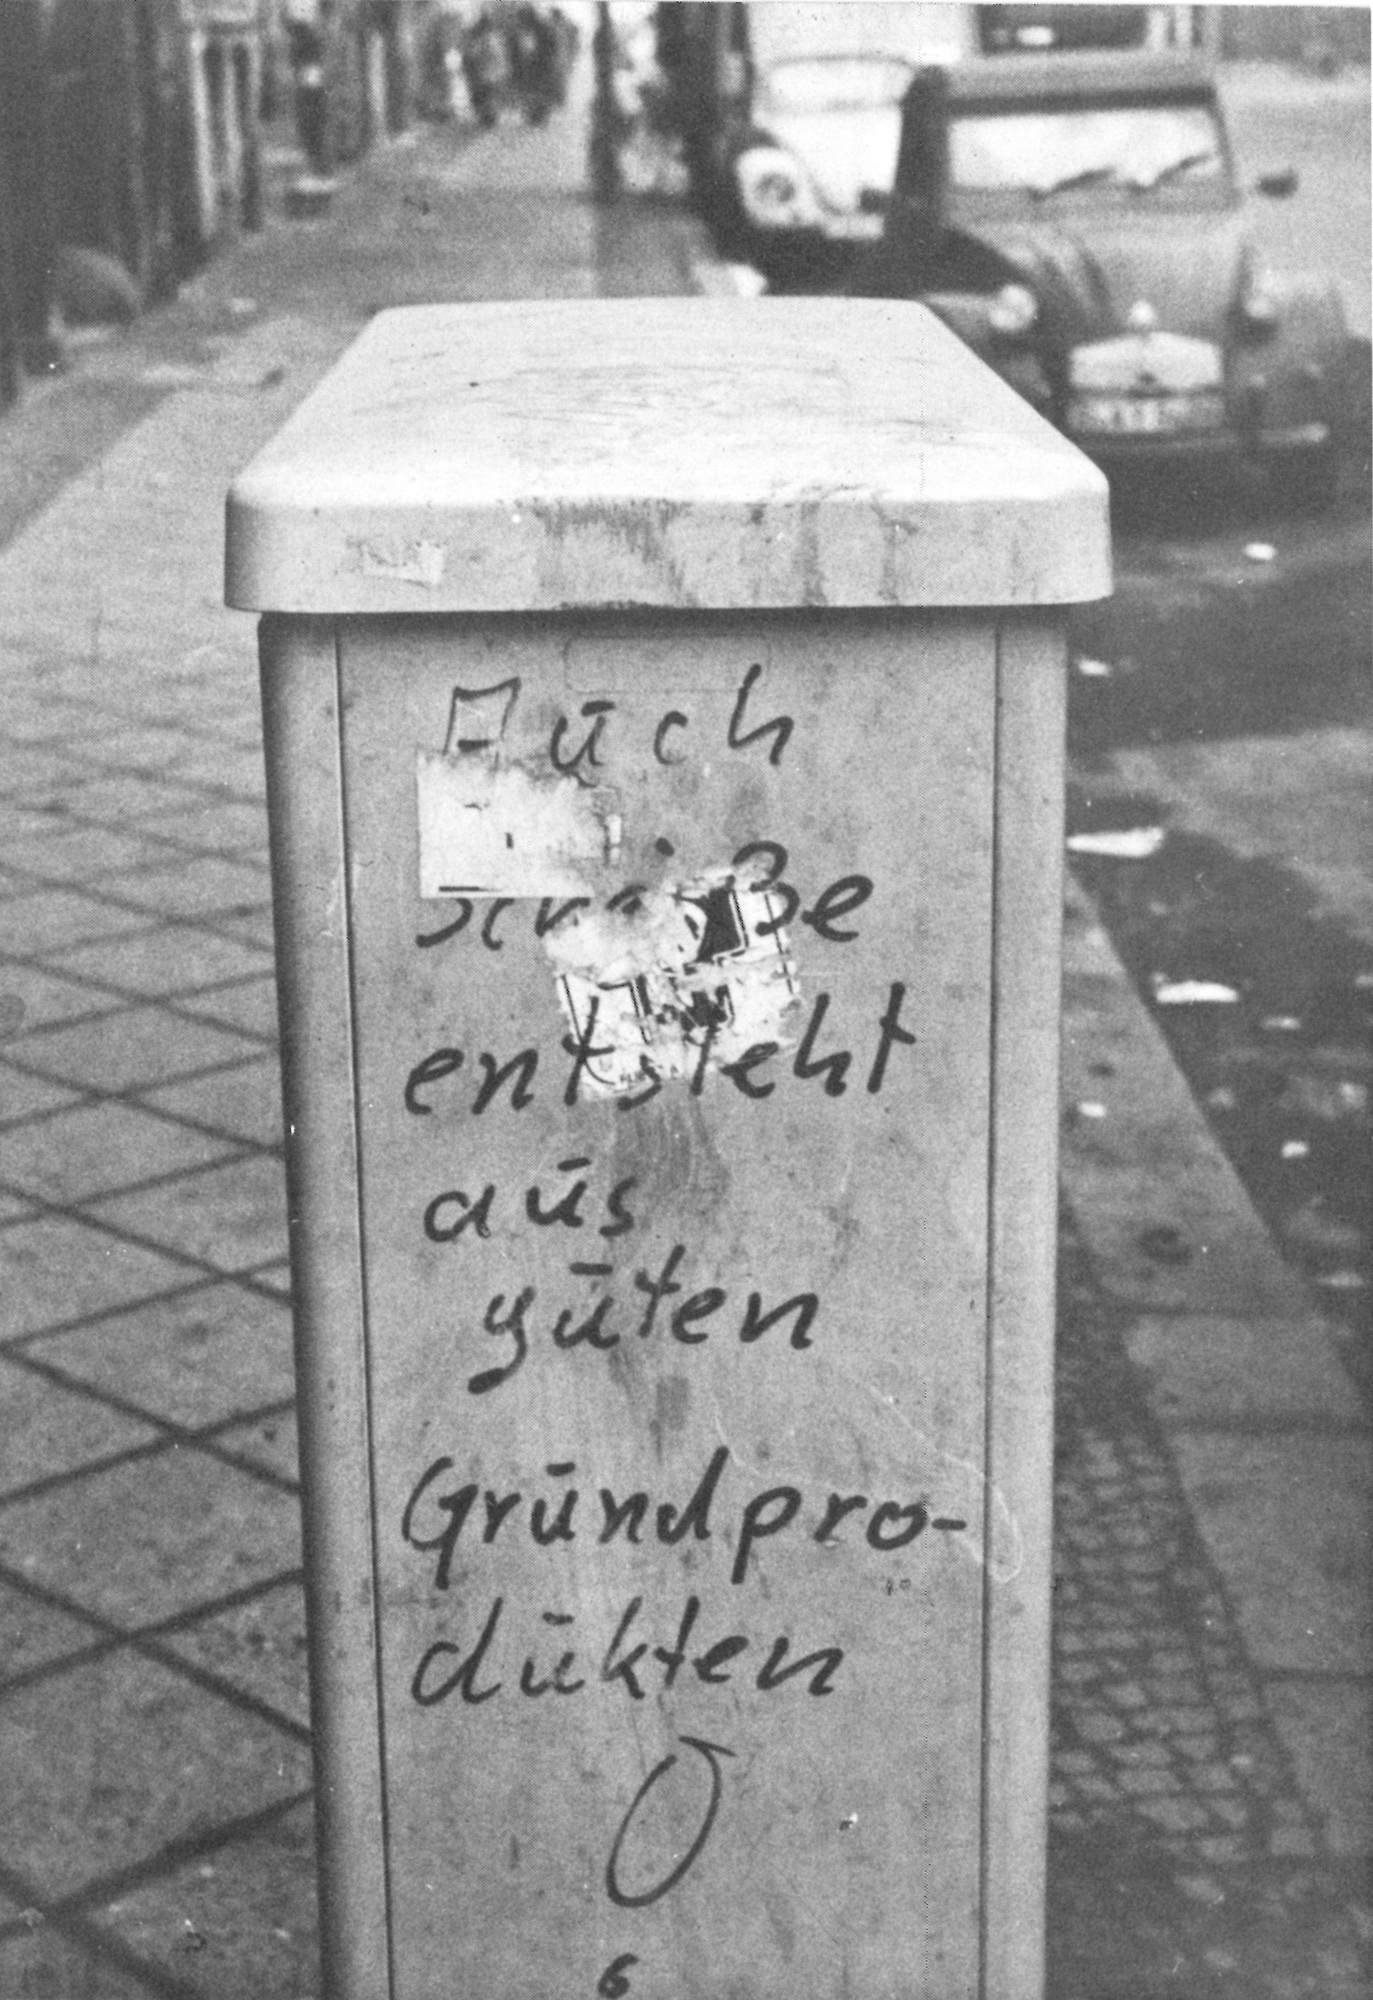 Auch
Scheiße
entsteht
aus
guten
Grundpro-
dukten
6